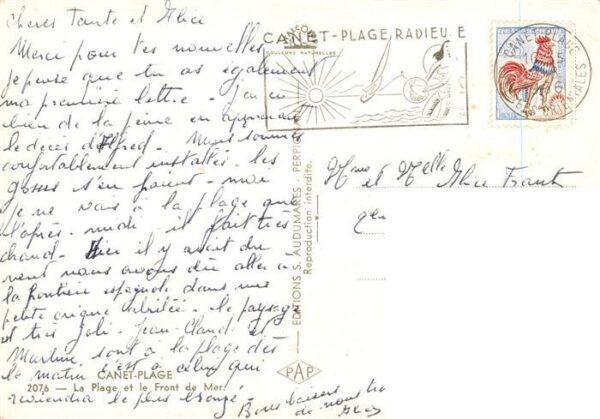 chères Tante et Alice
Merci pour tes nouvelles
je pense que tu as également
ma première lettre - J'ai eu
bien de la peine en apprenant
le décès d'Alfred - Nous sommes
confortablement installés - les
gosses s'en paient - moi
je ne vais à la plage que
l'après-midi - il fait très
chaud - Hier il y avait du
vent nous avons dû aller à
la frontière espagnole dans une
petite crique abritée - le paysage
est très joli - Jean-Claude et
Martine sont à la plage dès
le matin c'est à celui qui
reviendra le plus bronzé -
Bons baisers
de nous tous
CANET-PLAGE
2076 — La Plage et le Front de Mer
COULEURS NATURELLES
EDITIONS S. AUDUMARES - PERPI
Reproduction interdite.
PAP
CANET-PLAGE RADIEUSE
CANET-PLAGE
Mme et Melle Alice